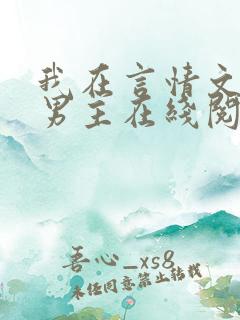 我在言情文
男主在线阅
吾心_xs8
未经同意禁止转载